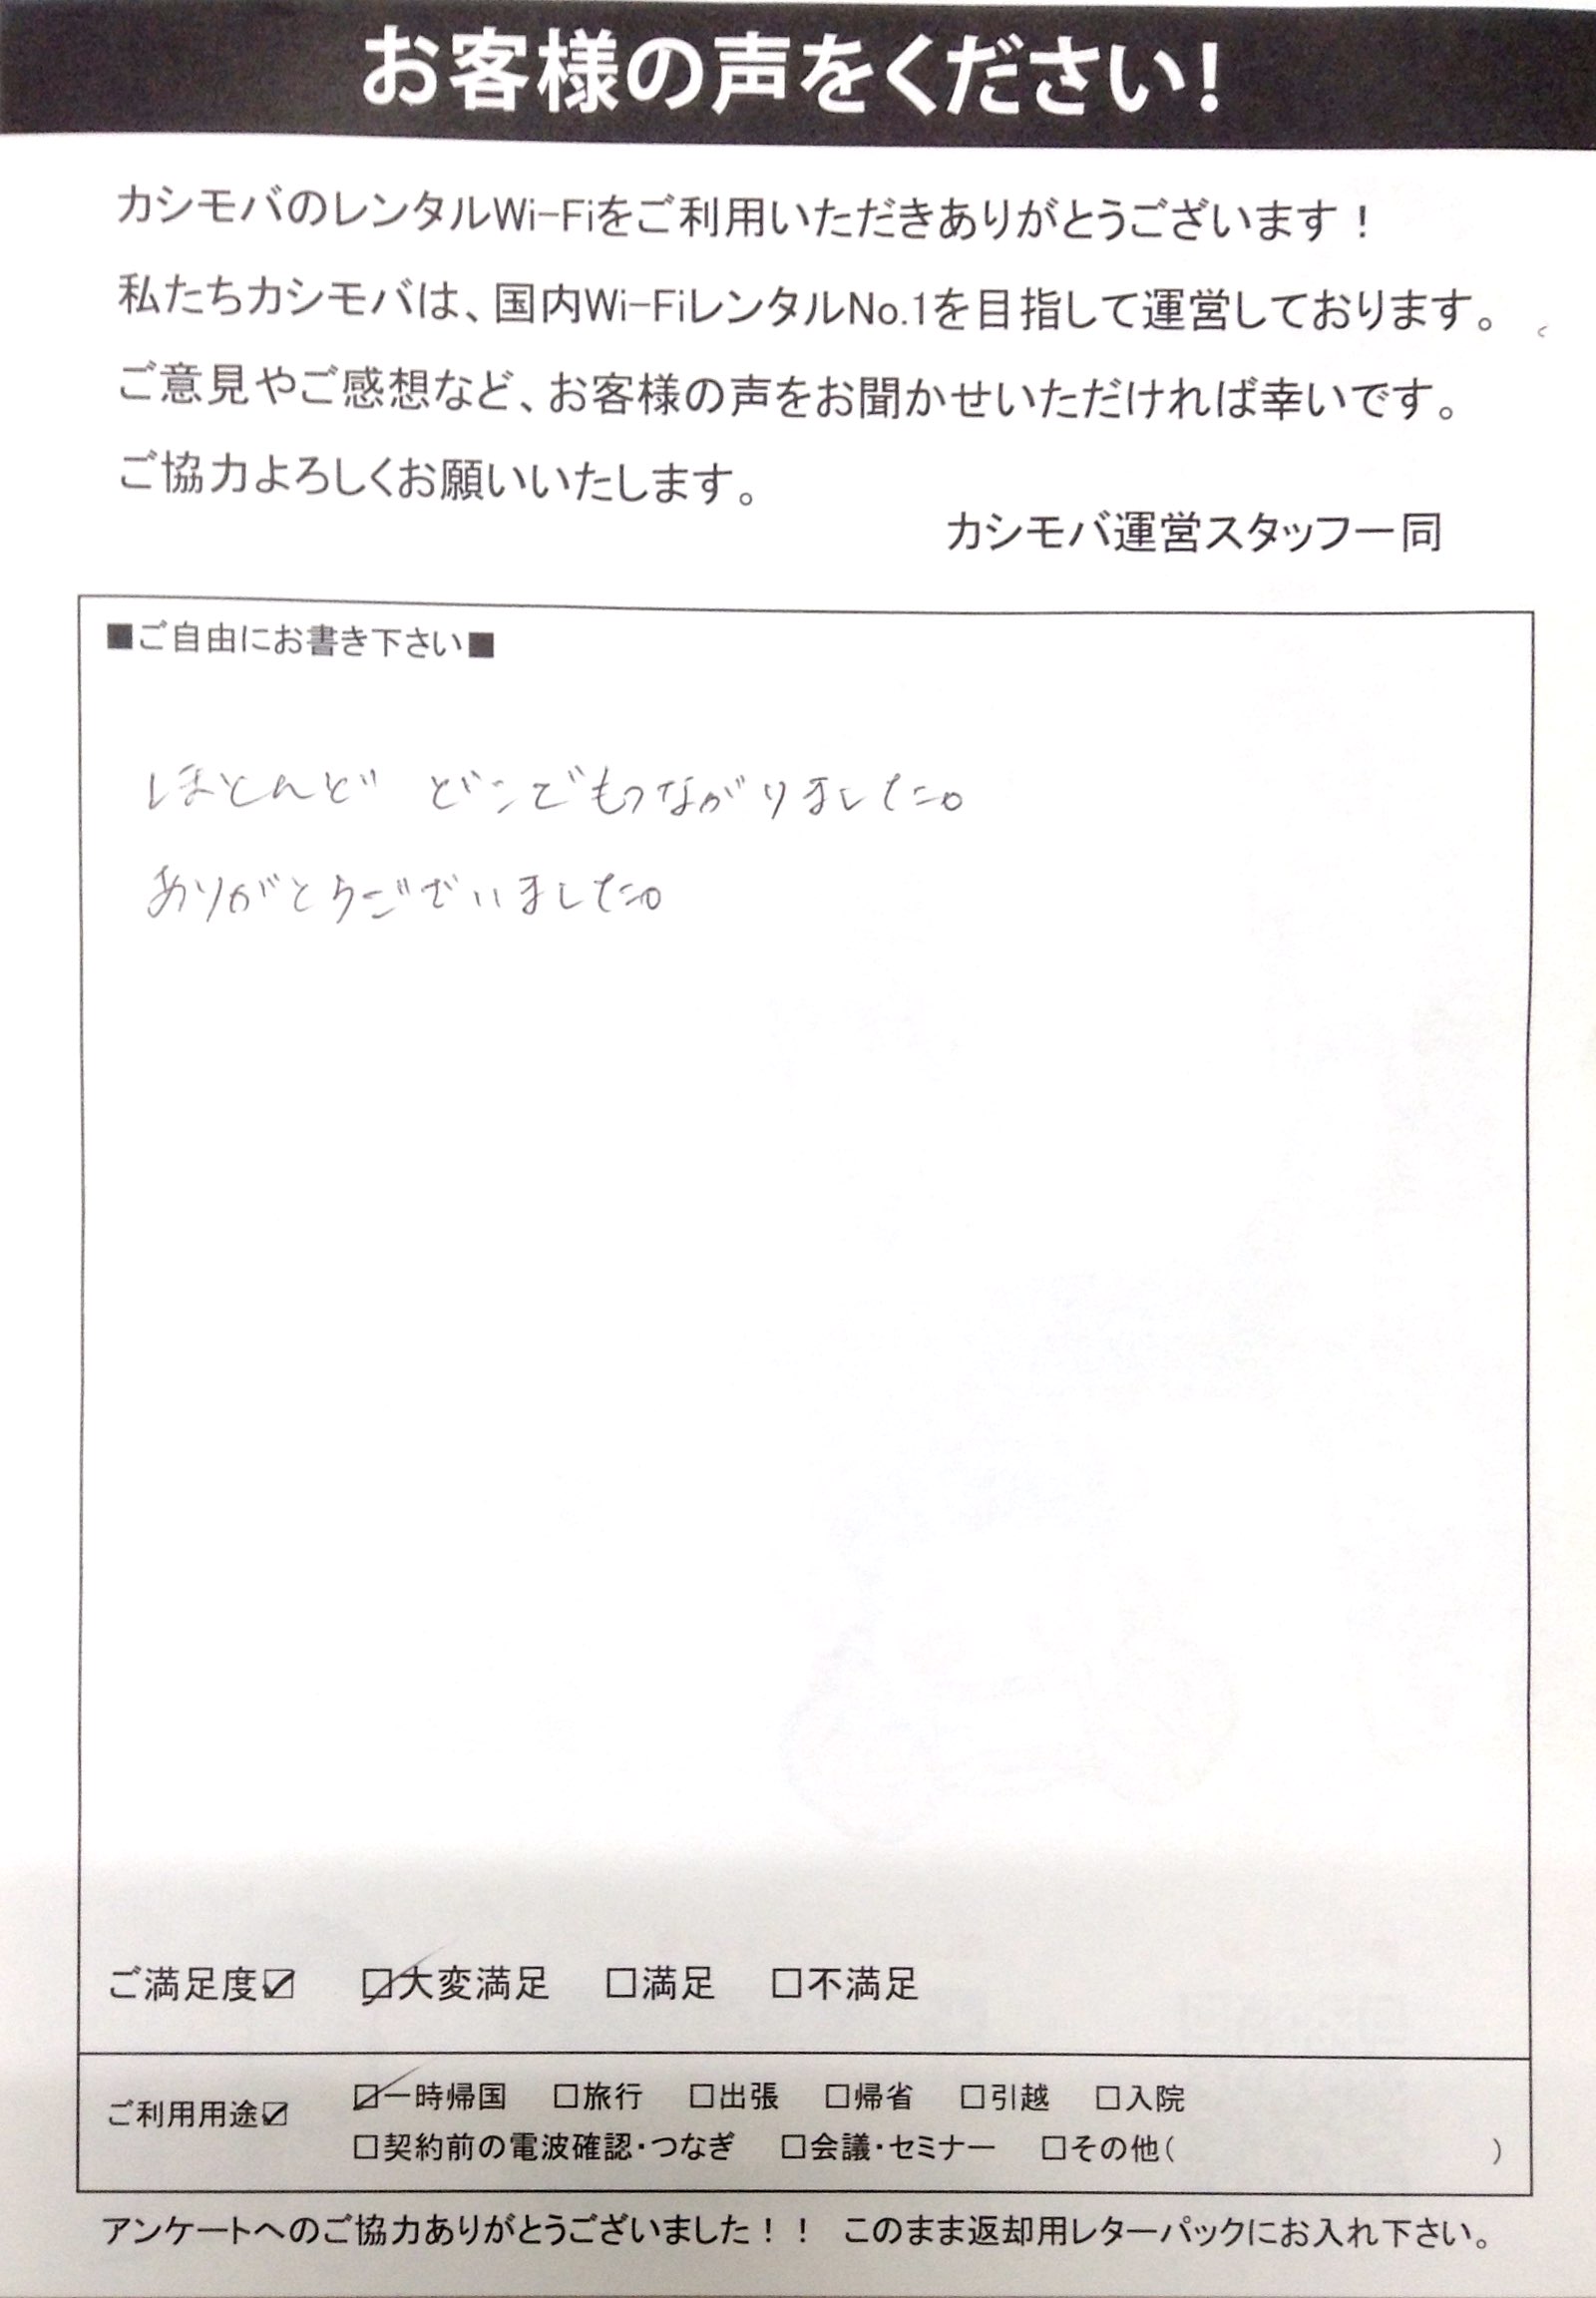 お客様の声をください!
カシモバのレンタルWi-Fiをご利用いただきありがとうございます！
私たちカシモバは、国内Wi-FiレンタルNo.1を目指して運営しております。
ご意見やご感想など、お客様の声をお聞かせいただければ幸いです。
ご協力よろしくお願いいたします。
カシモバ運営スタッフ一同
■ご自由にお書き下さい■
ほとんど どこでもつながりました。
ありがとうございました。
ご満足度☑ ☑大変満足 □満足 □不満足
ご利用用途☑ ☑一時帰国 □旅行 □出張 □帰省 □引越 □入院
□契約前の電波確認・つなぎ □会議・セミナー □その他( )
アンケートへのご協力ありがとうございました！！ このまま返却用レターパックにお入れ下さい。